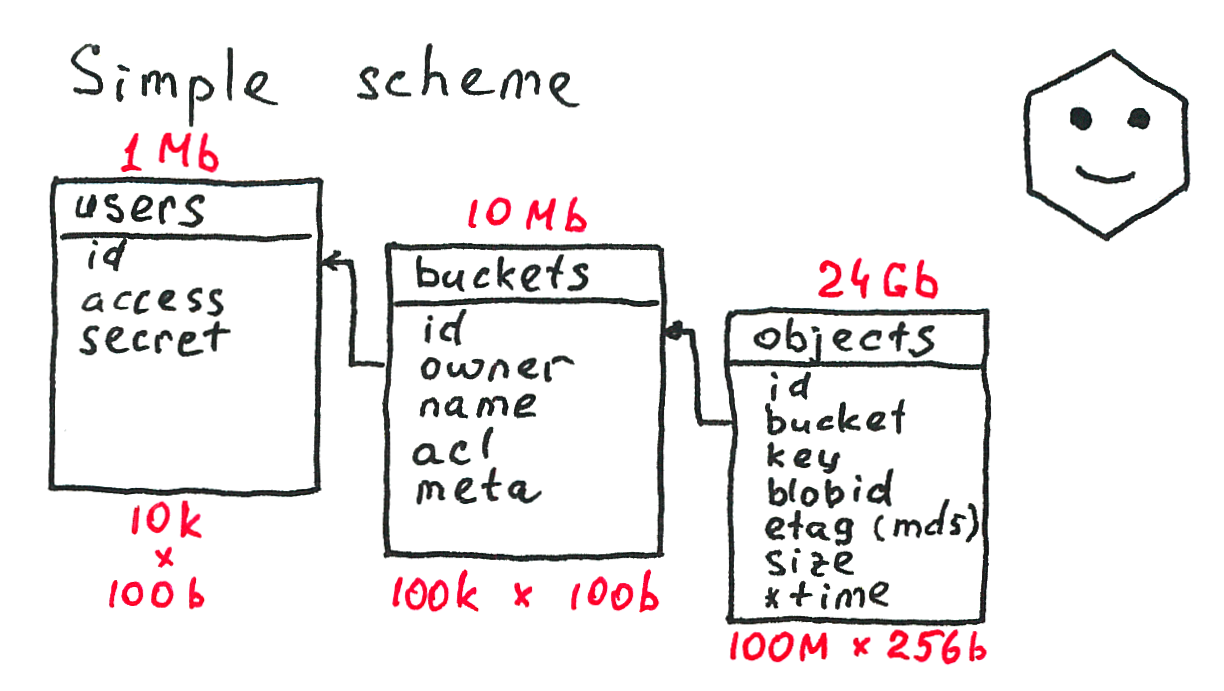 Simple scheme
1 Mb
users
id
access
secret
10k
×
100b
10 Mb
buckets
id
owner
name
acl
meta
100k × 100b
24Gb
objects
id
bucket
key
blobid
etag (md5)
size
*time
100M × 256b